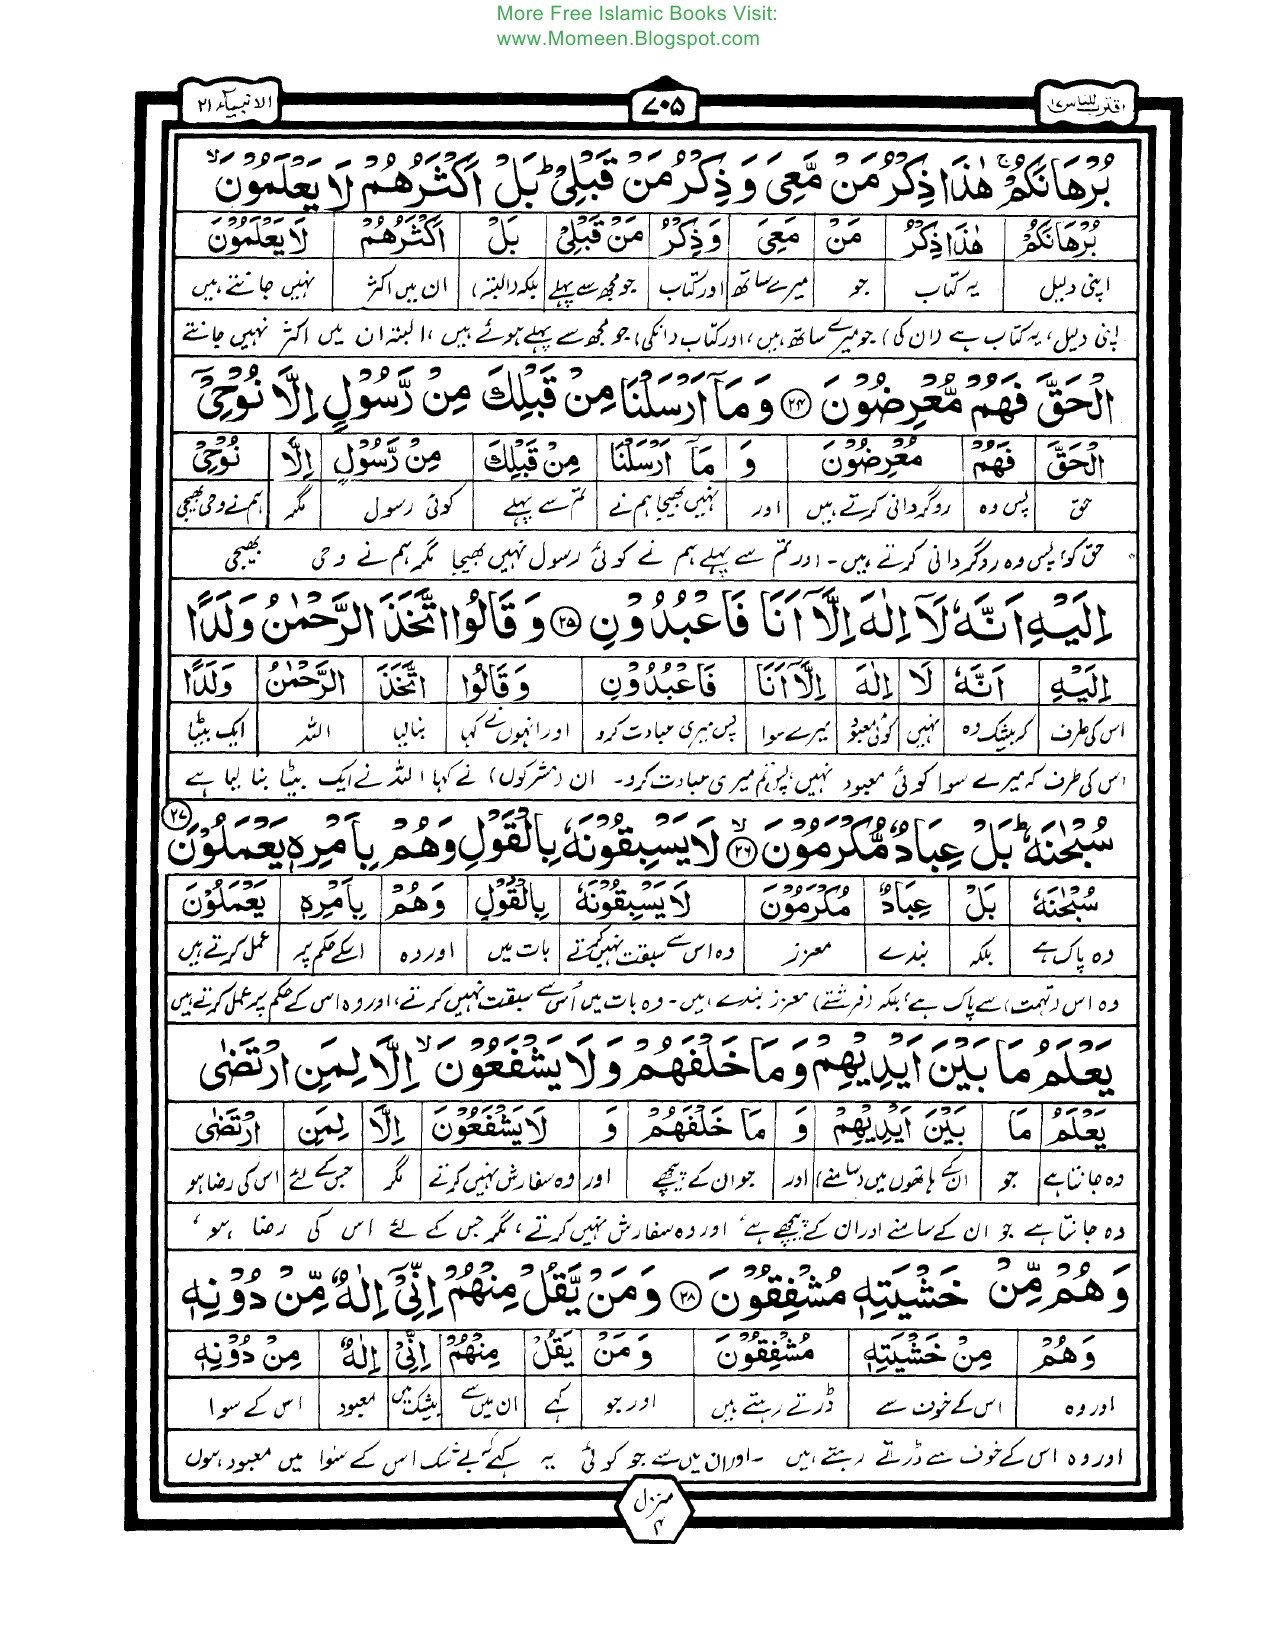 More Free Islamic Books Visit:
www.Momeen.Blogspot.com
اقترب للناس ۱۷
۷۰۵
الانبیآء ۲۱
بُرْهَانَكُمْ ۚ هٰذَا ذِكْرُ مَنْ مَّعِیَ وَ ذِكْرُ مَنْ قَبْلِیْ ؕ بَلْ اَكْثَرُهُمْ لَا یَعْلَمُوْنَ ۙ
بُرْهَانَكُمْ هٰذَا ذِكْرُ مَنْ مَّعِیَ وَ ذِكْرُ مَنْ قَبْلِیْ بَلْ اَكْثَرُهُمْ لَا یَعْلَمُوْنَ
اپنی دلیل یہ کتاب جو میرے ساتھ اور کتاب جو مجھ سے پہلے بلکہ (البتہ) ان میں اکثر نہیں جانتے ہیں
اپنی دلیل، یہ کتاب ہے (ان کی) جو میرے ساتھ ہیں، اور کتاب (انکی) جو مجھ سے پہلے ہوئے ہیں، البتہ ان میں اکثر نہیں جانتے
الْحَقَّ فَهُمْ مُّعْرِضُوْنَ ۲۴ وَ مَاۤ اَرْسَلْنَا مِنْ قَبْلِكَ مِنْ رَّسُوْلٍ اِلَّا نُوْحِیْۤ
الْحَقَّ فَهُمْ مُّعْرِضُوْنَ وَ مَاۤ اَرْسَلْنَا مِنْ قَبْلِكَ مِنْ رَّسُوْلٍ اِلَّا نُوْحِیْۤ
حق پس وہ روگردانی کرتے ہیں اور نہیں بھیجا ہم نے تم سے پہلے کوئی رسول مگر ہم نے وحی بھیجی
حق کو، پس وہ روگردانی کرتے ہیں۔ اور تم سے پہلے ہم نے کوئی رسول نہیں بھیجا مگر ہم نے وحی بھیجی
اِلَیْهِ اَنَّهٗ لَاۤ اِلٰهَ اِلَّاۤ اَنَا فَاعْبُدُوْنِ ۲۵ وَ قَالُوا اتَّخَذَ الرَّحْمٰنُ وَلَدًا
اِلَیْهِ اَنَّهٗ لَا اِلٰهَ اِلَّاۤ اَنَا فَاعْبُدُوْنِ وَ قَالُوا اتَّخَذَ الرَّحْمٰنُ وَلَدًا
اس کی طرف کہ بیشک وہ نہیں کوئی معبود میرے سوا پس میری عبادت کرو اور انہوں نے کہا بنا لیا اللہ ایک بیٹا
اس کی طرف کہ میرے سوا کوئی معبود نہیں، پس تم میری عبادت کرو۔ ان (مشرکوں) نے کہا اللہ نے ایک بیٹا بنا لیا ہے
سُبْحٰنَهٗ ؕ بَلْ عِبَادٌ مُّكْرَمُوْنَ ۙ ۲۶ لَا یَسْبِقُوْنَهٗ بِالْقَوْلِ وَهُمْ بِاَمْرِهٖ یَعْمَلُوْنَ ۲۷
سُبْحٰنَهٗ بَلْ عِبَادٌ مُّكْرَمُوْنَ لَا یَسْبِقُوْنَهٗ بِالْقَوْلِ وَهُمْ بِاَمْرِهٖ یَعْمَلُوْنَ
وہ پاک ہے بلکہ بندے معزز وہ اس سے سبقت نہیں کرتے بات میں اور وہ اسکے حکم پر عمل کرتے ہیں
وہ اس (تہمت) سے پاک ہے، بلکہ (فرشتے) معزز بندے ہیں۔ وہ بات میں اُس سے سبقت نہیں کرتے، اور وہ اس کے حکم پر عمل کرتے ہیں
یَعْلَمُ مَا بَیْنَ اَیْدِیْهِمْ وَ مَا خَلْفَهُمْ وَ لَا یَشْفَعُوْنَ ۙ اِلَّا لِمَنِ ارْتَضٰی
یَعْلَمُ مَا بَیْنَ اَیْدِیْهِمْ وَ مَا خَلْفَهُمْ وَ لَا یَشْفَعُوْنَ اِلَّا لِمَنِ ارْتَضٰی
وہ جانتا ہے جو ان کے ہاتھوں میں (سامنے) اور جو ان کے پیچھے اور وہ سفارش نہیں کرتے مگر جس کے لئے اس کی رضا ہو
وہ جانتا ہے جو ان کے سامنے اور ان کے پیچھے ہے، اور وہ سفارش نہیں کرتے، مگر جس کے لئے اس کی رضا ہو،
وَ هُمْ مِّنْ خَشْیَتِهٖ مُشْفِقُوْنَ ۲۸ وَ مَنْ یَّقُلْ مِنْهُمْ اِنِّیْۤ اِلٰهٌ مِّنْ دُوْنِهٖ
وَ هُمْ مِنْ خَشْیَتِهٖ مُشْفِقُوْنَ وَ مَنْ یَّقُلْ مِنْهُمْ اِنِّیْ اِلٰهٌ مِنْ دُوْنِهٖ
اور وہ اس کے خوف سے ڈرتے رہتے ہیں اور جو کہے ان میں سے بیشک میں معبود اس کے سوا
اور وہ اس کے خوف سے ڈرتے رہتے ہیں ۔ اور ان میں سے جو کوئی یہ کہے کہ بے شک اس کے سوا میں معبود ہوں
منزل ۴